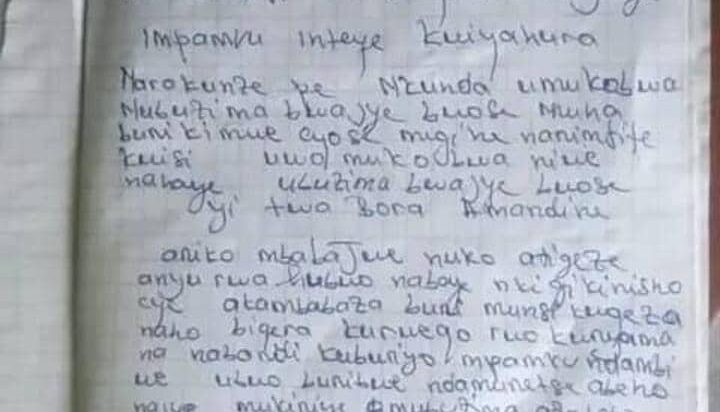 impamvu inteye kwiyahura
Narokunze pe Nkunda umukobwa
Mubuzima bwajye bwose Muha
buri kimwe cyose mugihe narimfite
kwisi uwo mukobwa niwe
nabaye ubuzima bwajye bwose
yi twa Bora Amandine
ariko mbabajwe nuko atigeze
anyurwa Ahubwo nabaye nkigikinisho
cye akambabaza buri munsi kugeza
naho bigera kurwego rwo kuryama
na nabandi kuburiyo mpamvu ndambi
we ubwo buribwe ndamunetse abeho